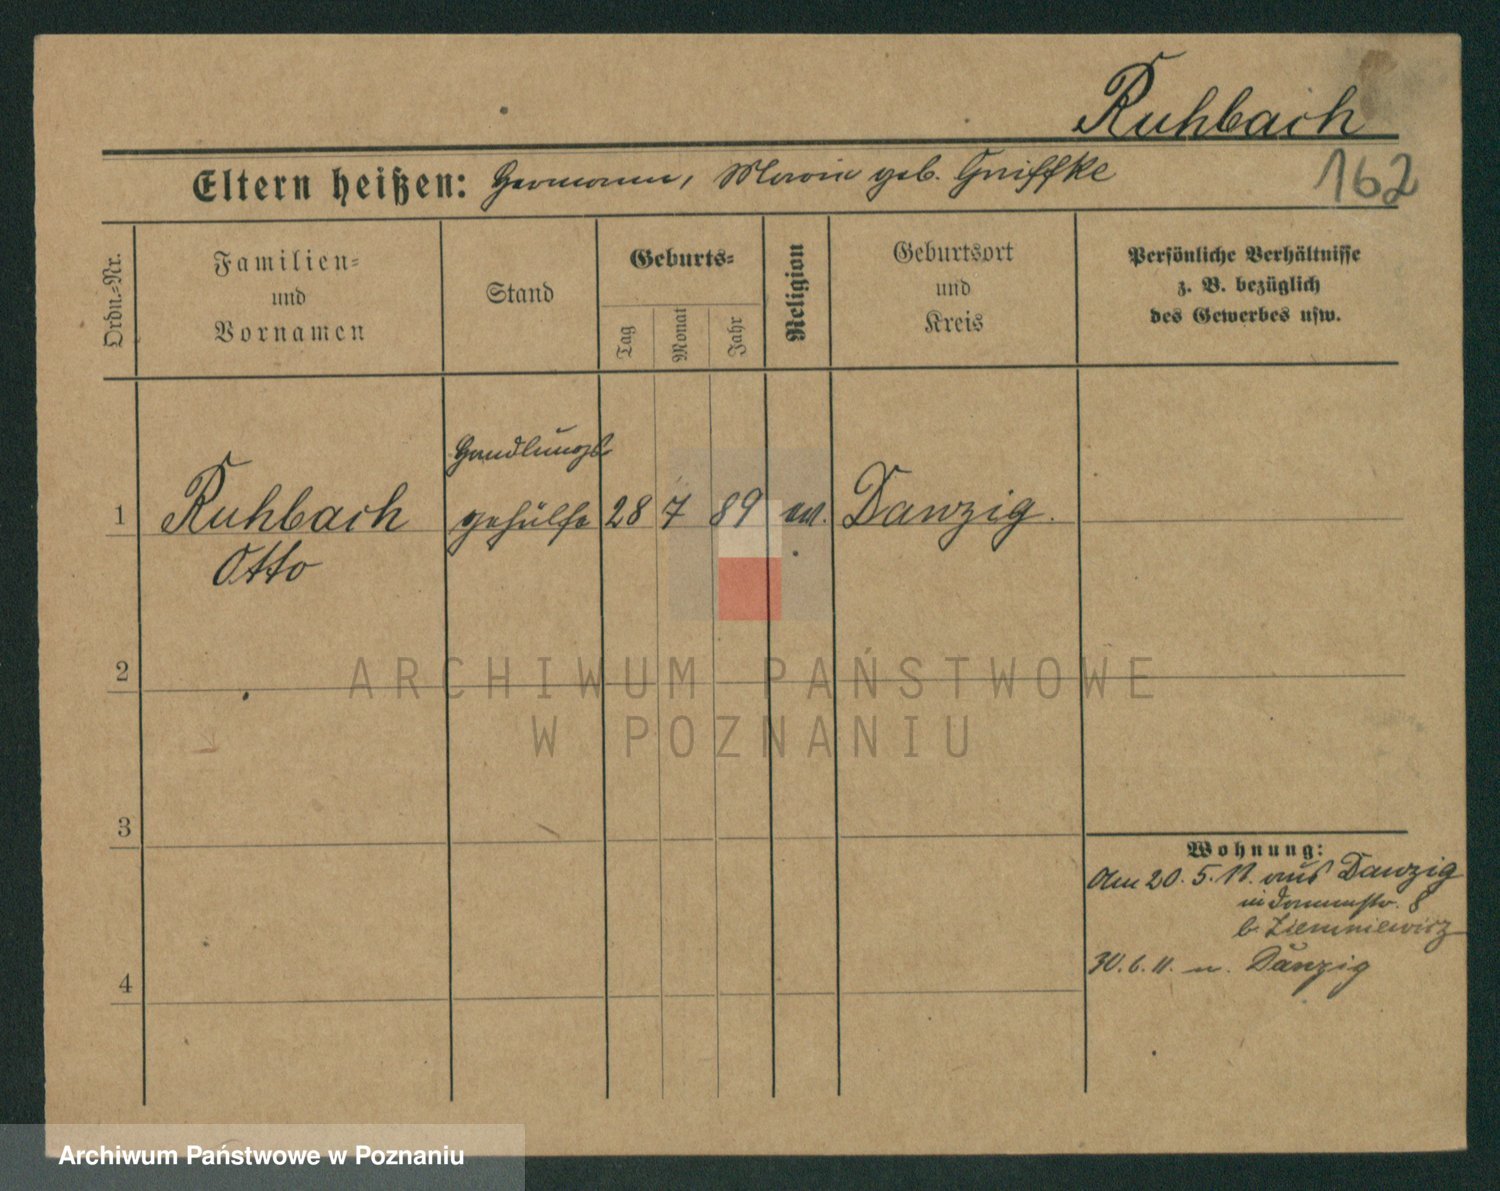 Ruhbach
162
Eltern heißen: Hermann, Marie geb. Gniffke
Ordn.-Nr.
Familien-
und
Vornamen
Stand
Geburts-
Tag
Monat
Jahr
Religion
Geburtsort
und
Kreis
Persönliche Verhältnisse
z. B. bezüglich
des Gewerbes usw.
Handlungs
1 Ruhbach gehülfe 28 7 89 ev. Danzig.
Otto
2
ARCHIWUM PAŃSTWOWE
W POZNANIU
3
Wohnung:
Am 20. 5. 11. aus Danzig
8
b. Ziemniewicz
4
30. 6. 11. n. Danzig
Archiwum Państwowe w Poznaniu